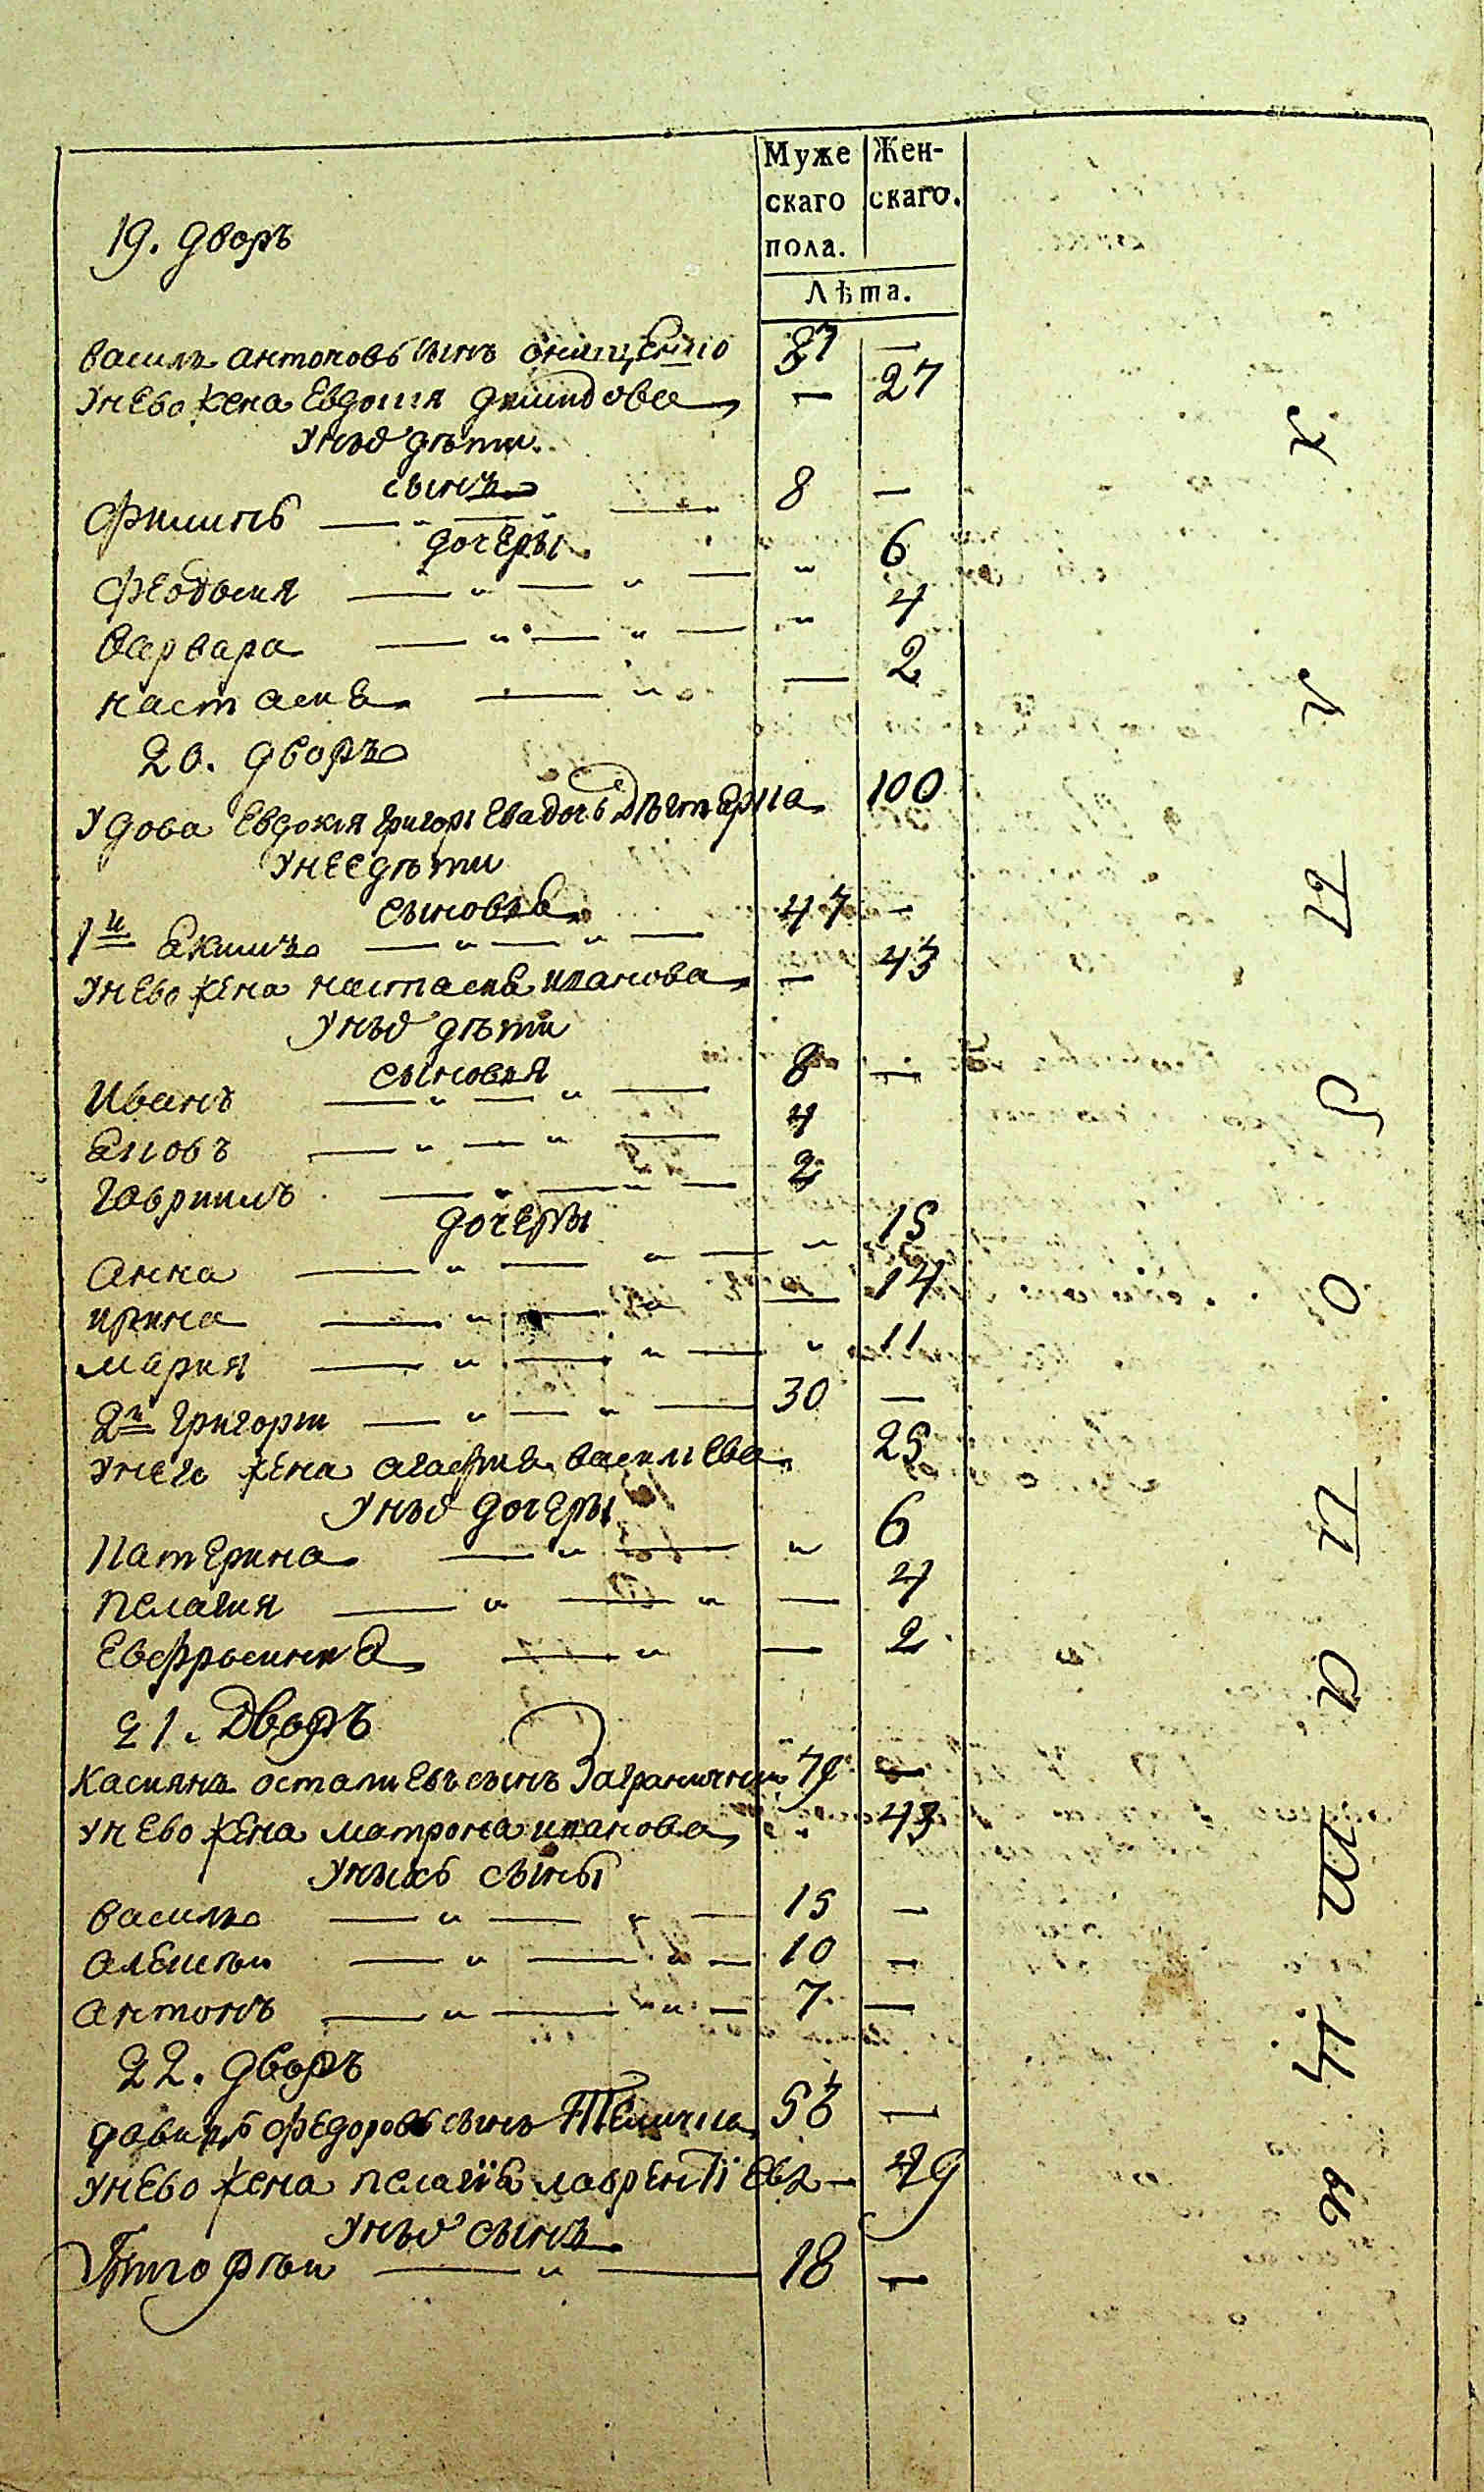 Муже
скаго
пола.
Жен-
скаго.
Лѣта.
19. дворъ
василъ антоновъ сынъ онищенко 37 —
Унево жена Евдокия демидова — 27
Унѣхъ дѣти
сынъ
Филипъ 8 —
дочеры
Феодосия 6
Варвара 4
настасия — 2
20. дворъ
Удова Евдокия Григориева дочь 100
Унее дѣти
сыновья
1й Якимъ 47 —
Унево жена настасия иванова — 43
Унѣхъ дѣти
сыновья
Иванъ 8 —
Яковъ 4
Гавриилъ 2
дочеры
Анна 15
ирина — 14
мария 11
2й Григорий 30 —
Унего жена агафия василиева 25
Унѣхъ дочеры
Катерина 6
пелагия — 4
Евфросиния — 2
21. Дворъ
Касиянъ остапиевъ сынъ Заграничний —
Унево жена матрона иванова 43
Унихъ сыны
василъ 15 —
алексѣй 10 —
антонъ 7 —
22. дворъ
давидъ федоровъ сынъ —
Унево жена пелагія лаврентіева — 49
Унѣхъ сынъ
Тимофѣй 18 —